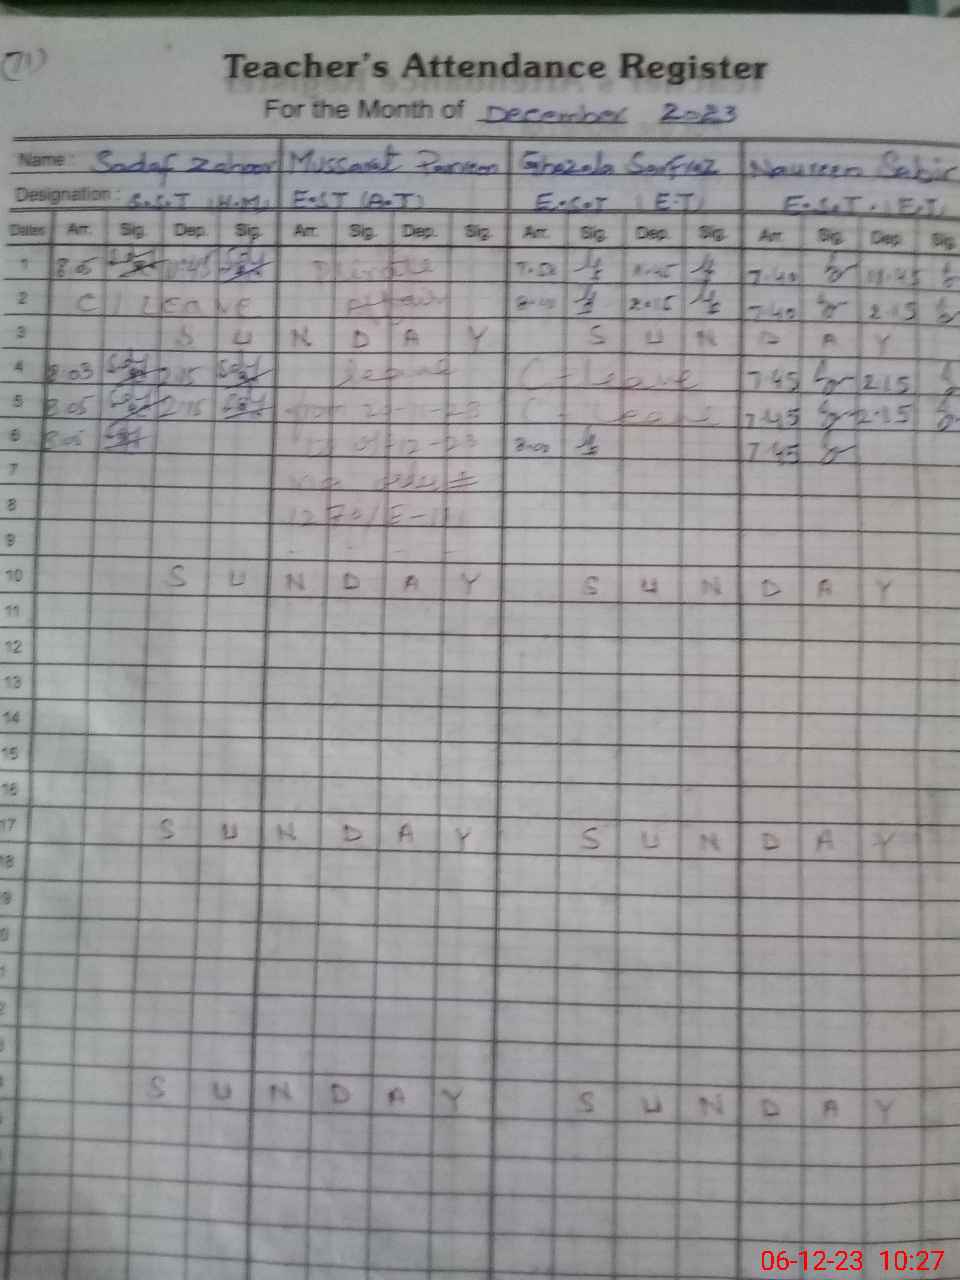 (71)
Teacher's Attendance Register
For the Month of December 2023
Name: Sadaf Zahoor Mussarat Parveen Ghazala Sarfraz Naureen Sabir
Designation: S.S.T (H.M) E.S.T (A.T) E.S.T (E.T) E.S.T. (E.T)
Dates Arr. Sig. Dep. Sig. Arr. Sig. Dep. Sig. Arr. Sig. Dep. Sig. Arr. Sig. Dep. Sig.
1 8.05 11.45 7.58 11.45 7.40 11.45
2 C/Leave 8.00 2.15 7.40 2.15
3 S U N D A Y S U N D A Y
4 8.03 2.15 leave C-leave 7.45 2.15
5 8.05 2.15 C-Leave 7.45 2.15
6 8.05 8.00 7.45
7
8
9
10 S U N D A Y S U N D A Y
11
12
13
14
15
16
17 S U N D A Y S U N D A Y
18
S U N D A Y S U N D A Y
06-12-23 10:27